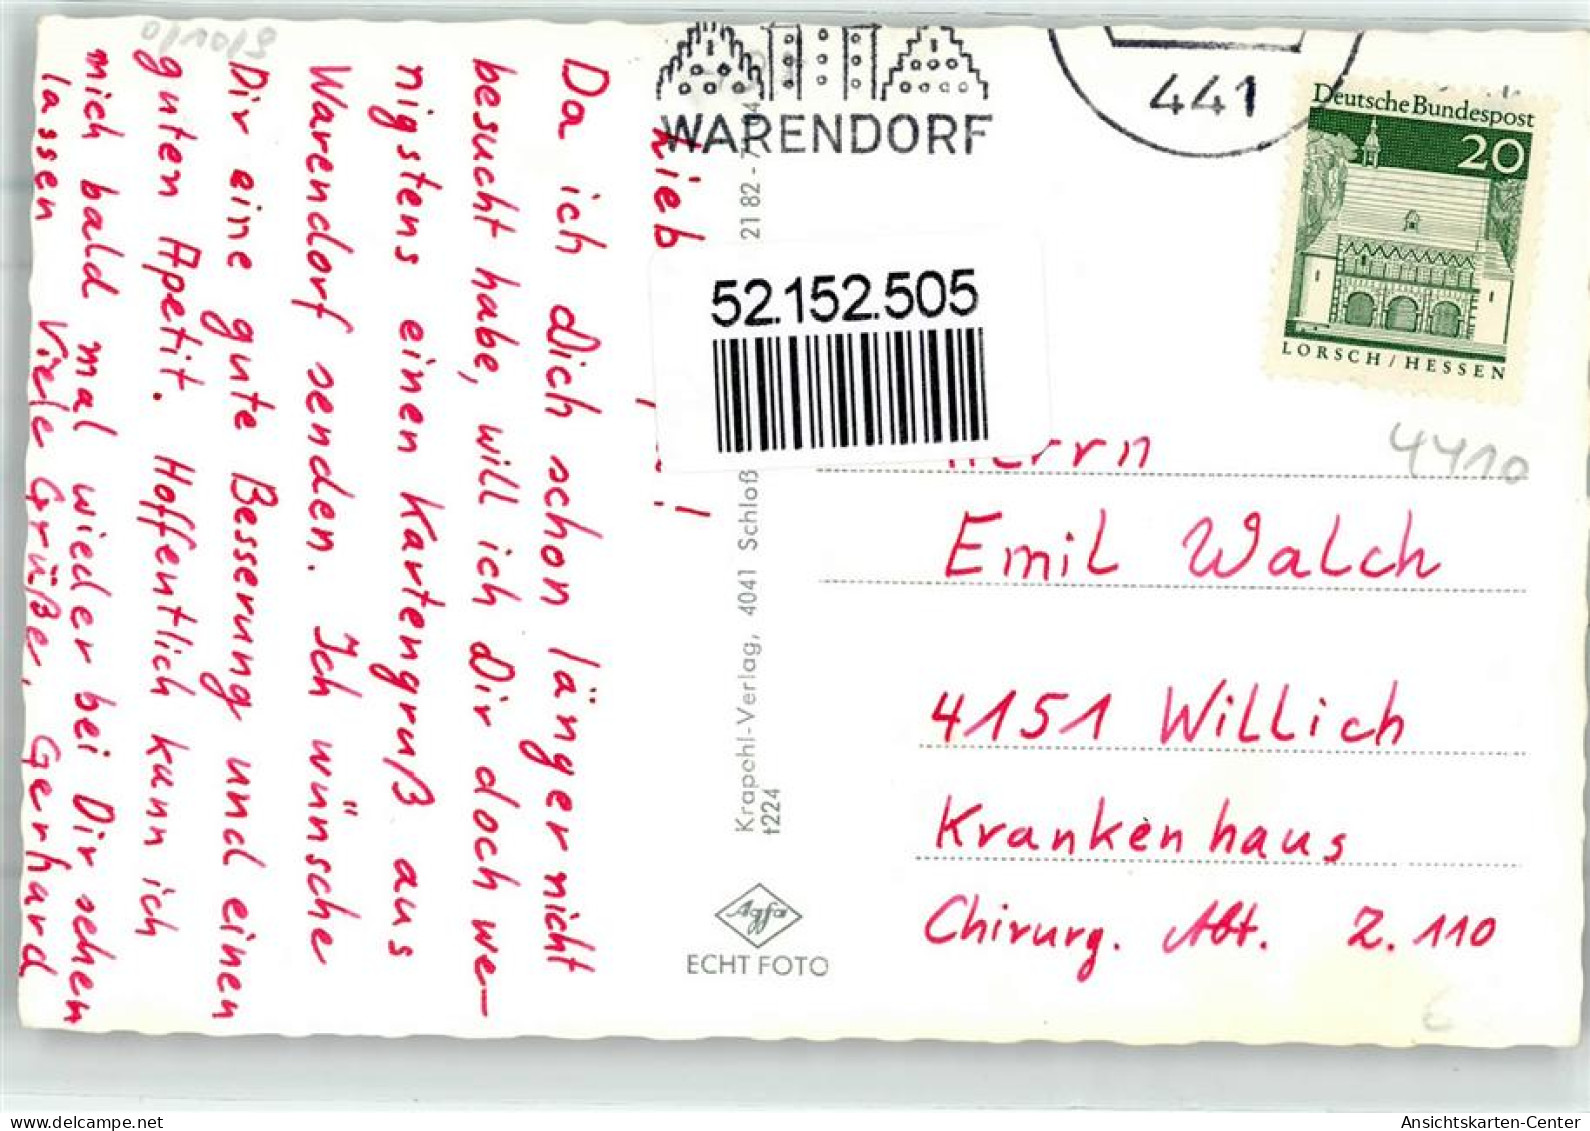 WARENDORF
441
Deutsche Bundespost
20
LORSCH/HESSEN
52.152.505
4410
Da ich Dich schon länger nicht
besucht habe, will ich Dir doch we-
nigstens einen Kartengruß aus
Warendorf senden. Ich wünsche
Dir eine gute Besserung und einen
guten Apetit. Hoffentlich kann ich
mich bald mal wieder bei Dir sehen
lassen Viele Grüße, Gerhard
Krapohl-Verlag, 4041 Schloß
t224
2182-7
Agfa
ECHT FOTO
Herrn
Emil Walch
4151 Willich
Krankenhaus
Chirurg. Abt. Z. 110
AnsichtskartenCenter.net
Ansichtskarten-Center